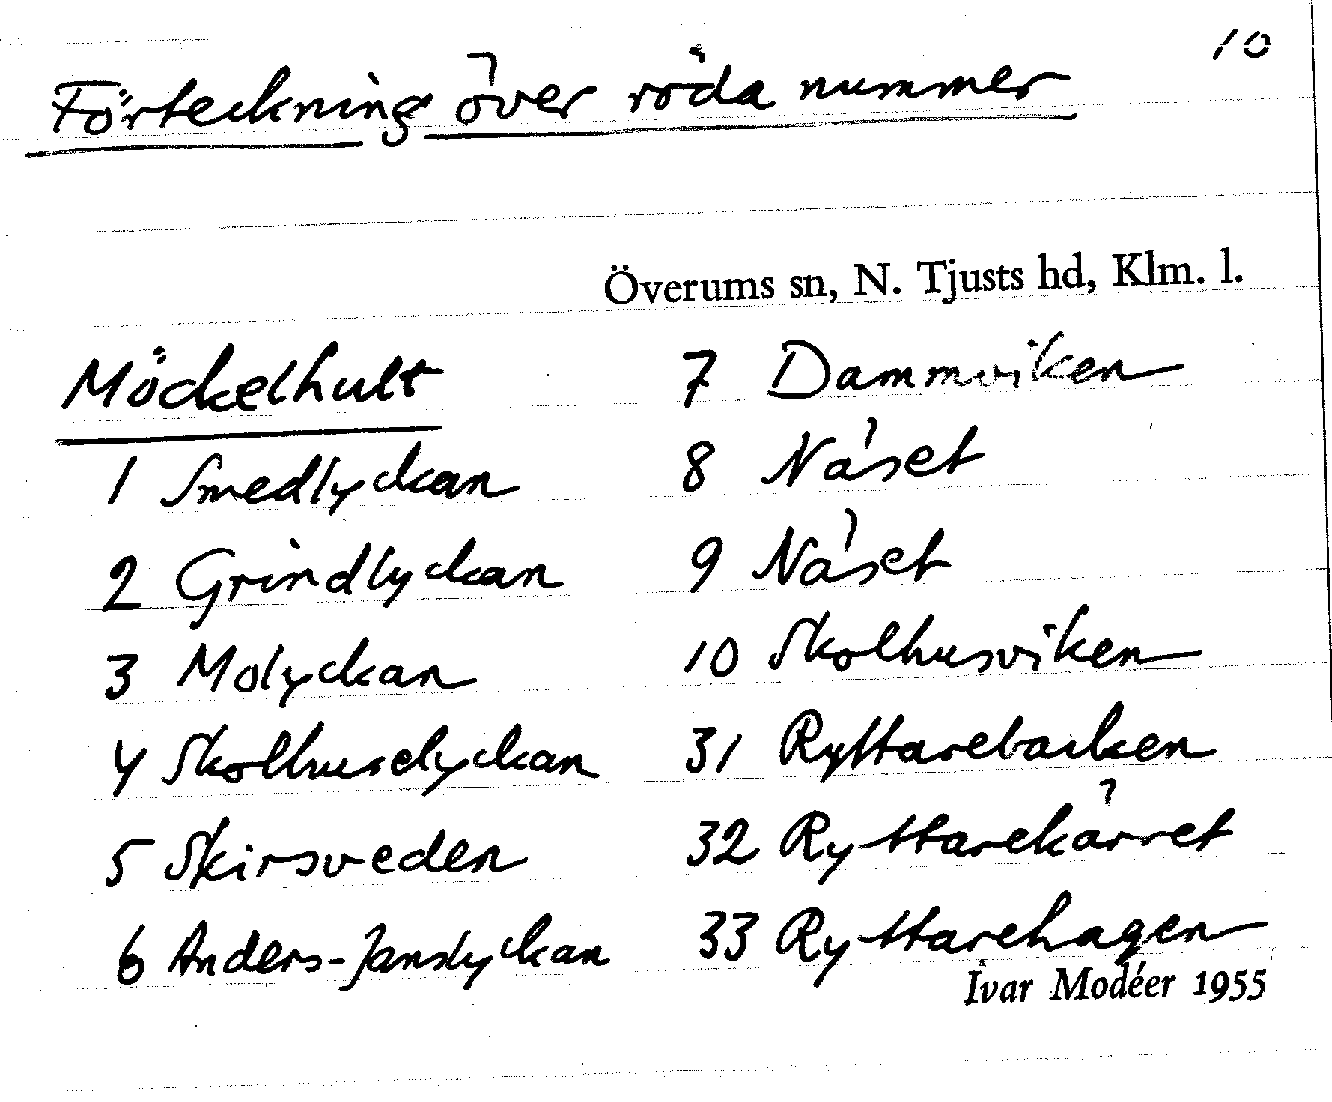 10
Förteckning över röda nummer
Överums sn, N. Tjusts hd, Klm. l.
Möckelhult
1 Smedlyckan
2 Grindlyckan
3 Molyckan
4 Skolhuselyckan
5 Skirsveden
6 Anders-Janslyckan
7 Dammviken
8 Näset
9 Näset
10 Skolhusviken
31 Ryttarebacken
32 Ryttarekärret
33 Ryttarehagen
Ivar Modéer 1955